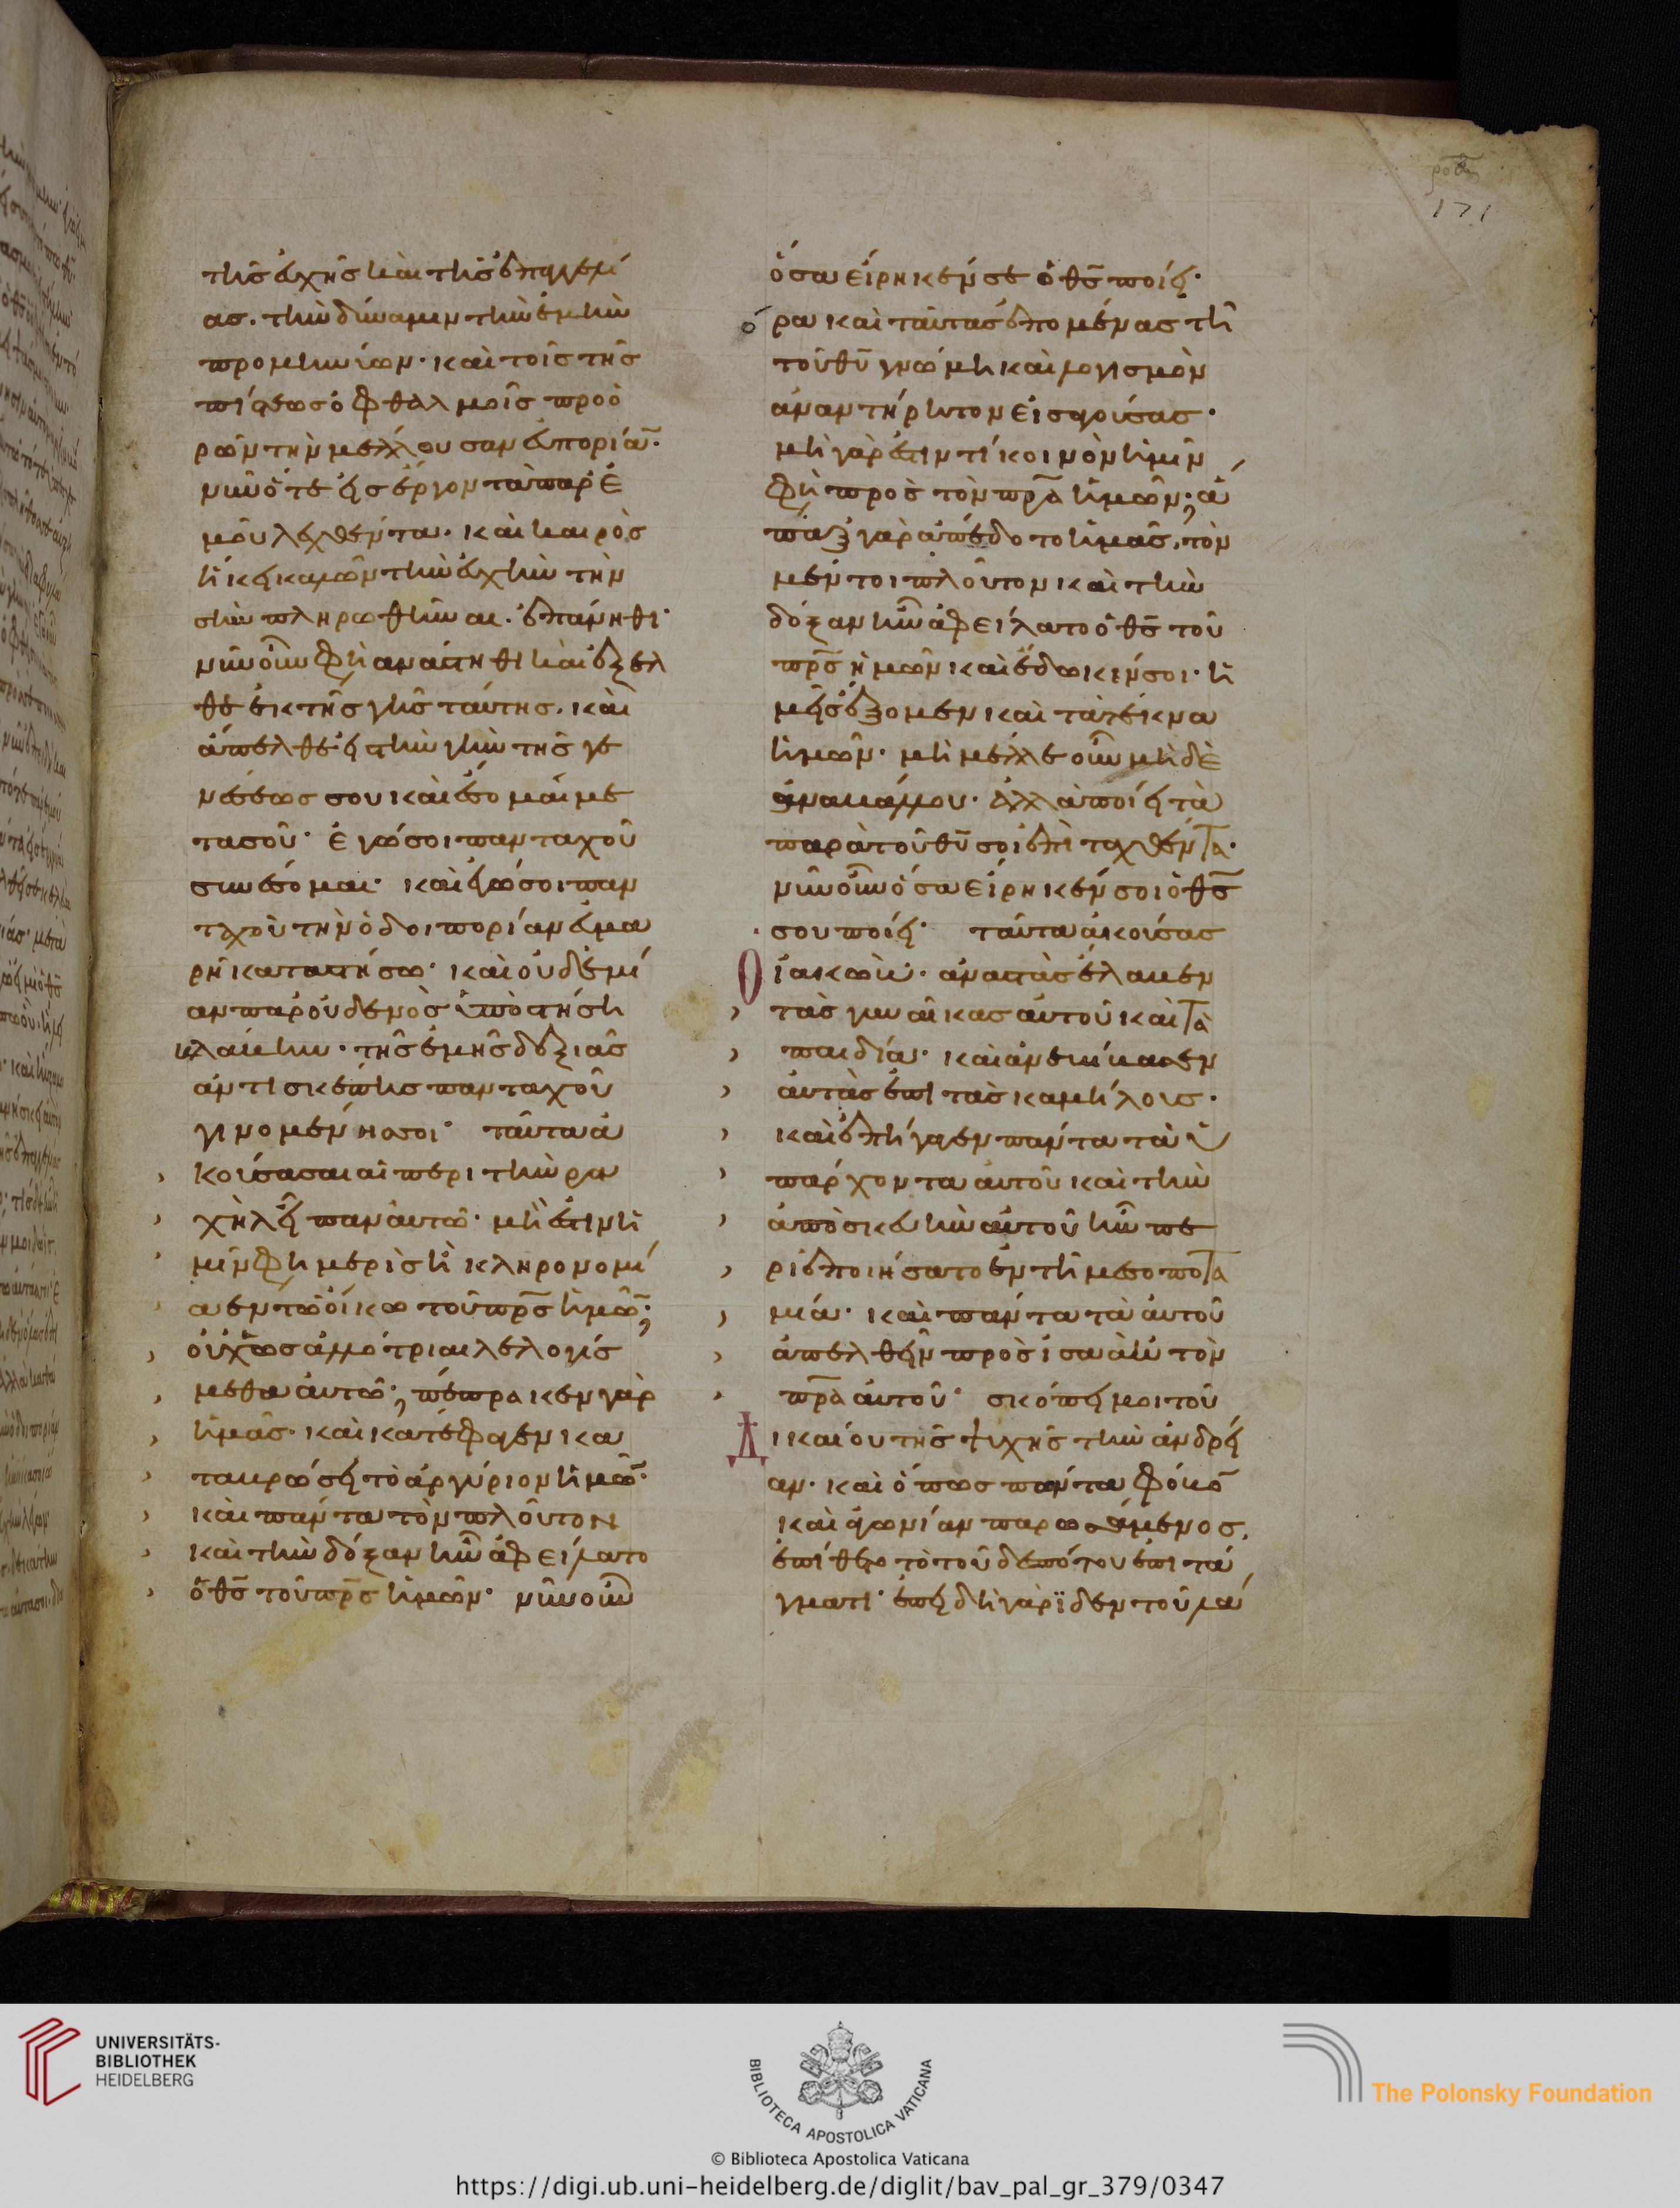 ροθ
171
τῆς εὐχῆς καὶ τῆς ἐπαγγελί
ας. τὴν δύναμιν τὴν ἐμὴν
προμηνύων· καὶ τοῖς τῆς
πίστεως ὀφθαλμοῖς προο
ρῶν τὴν μέλλουσαν εὐπορίαν·
νῦν ὅτε εἰς ἔργον τὰ παρ' ἐ
μοῦ λεχθέντα. καὶ καιρὸς
ἥκει καλῶν τὴν εὐχὴν τὴν
σὴν πληρωθῆναι. ἐπάνηθι·
νῦν οὖν φη ἀνάστηθι καὶ ἔξελ
θε ἐκ τῆς γῆς ταύτης. καὶ
ἄπελθε εἰς τὴν γῆν τῆς γε
νέσεώς σου καὶ ἔσομαι με
τὰ σοῦ· ἐγώ σοι πανταχοῦ
συνέσομαι· καὶ ἐγώ σοι παν
ταχοῦ τὴν ὁδοιπορίαν εὐμα
ρῆ καταστήσω· καὶ οὐδεμί
αν παρ' οὐδενὸς ὑποστήσῃ
βλάβην· τῆς ἐμῆς δεξιᾶς
ἀντὶ σκέπης πανταχοῦ
γινομένης σοι· ταῦτα ἀ
κούσασαι αἱ περὶ τὴν ρα
χὴλ εἶπαν αὐτῶ· μὴ ἔστιν ἡ
μῖν φη μερὶς ἢ κληρονομί
α ἐν τῶ οἴκω τοῦ πρς ἡμῶν;
οὐχ ὡς ἀλλότριαι λελογίς
μεθα αὐτῶ; πέπρακεν γὰρ
ἡμᾶς· καὶ κατέφαγεν κα
ταβρώσει τὸ ἀργύριον ἡμῶν·
καὶ πάντα τὸν πλοῦτον
καὶ τὴν δόξαν ἣν ἀφείλατο
ὁ θς τοῦ πρς ἡμῶν· νῦν οὖν
ὅσα εἴρηκέν σε ὁ θς ποίει·
ὅρα καὶ ταύτας ἑπομένας τῆ
τοῦ θυ γνώμη καὶ λογισμὸν
ἀναντήρητον εἰσφούσας·
μὴ γὰρ ἔστιν τί κοινὸν ἡμῖν
φη πρὸς τὸν πρα ἡμῶν; ἅ
παξ γὰρ ἀπέδοτο ἡμᾶς. τὸν
μέντοι πλοῦτον καὶ τὴν
δόξαν ἣν ἀφείλατο ὁ θς τοῦ
πρς ἡμῶν καὶ ἔδωκέν σοι· ἡ
μεῖς ἕξομεν καὶ τὰ τέκνα
ἡμῶν· μὴ μέλλε οὖν μὴ δὲ
ἀναβάλλου· ἀλλὰ ποίει τὰ
παρὰ τοῦ θυ σοι ἐπιταχθέντα·
νῦν οὖν ὅσα εἴρηκέν σοι ὁ θς
σου ποίει· ταῦτα ἀκούσας
ὁ ἰακώβ· ἀναστὰς ἔλαβεν
τὰς γυναῖκας αὐτοῦ καὶ τὰ
παιδία· καὶ ἀνεβίβασεν
αὐτὰς ἐπὶ τὰς καμήλους·
καὶ ἐπήγαγεν πάντα τὰ ὑ
πάρχοντα αὐτοῦ καὶ τὴν
ἀποσκευὴν αὐτοῦ ἣν πε
ριεποιήσατο ἐν τῆ μεσοποτα
μία· καὶ πάντα τὰ αὐτοῦ
ἀπελθεῖν πρὸς ἰσαὰκ τὸν
πρα αὐτοῦ· σκόπει μοι τοῦ
Δικαίου τῆς ψυχῆς τὴν ἀνδρεί
αν· καὶ ὅπως πάντα φόβον
καὶ ἀγωνίαν παρωσάμενος,
ἐπείθετο τὸ τοῦ δεσπότου ἐπιτά
γματι· ἐπειδὴ γὰρ ἴδεν τοῦ λα
UNIVERSITÄTS-
BIBLIOTHEK
HEIDELBERG
BIBLIOTECA APOSTOLICA VATICANA
The Polonsky Foundation
© Biblioteca Apostolica Vaticana
https://digi.ub.uni-heidelberg.de/diglit/bav_pal_gr_379/0347